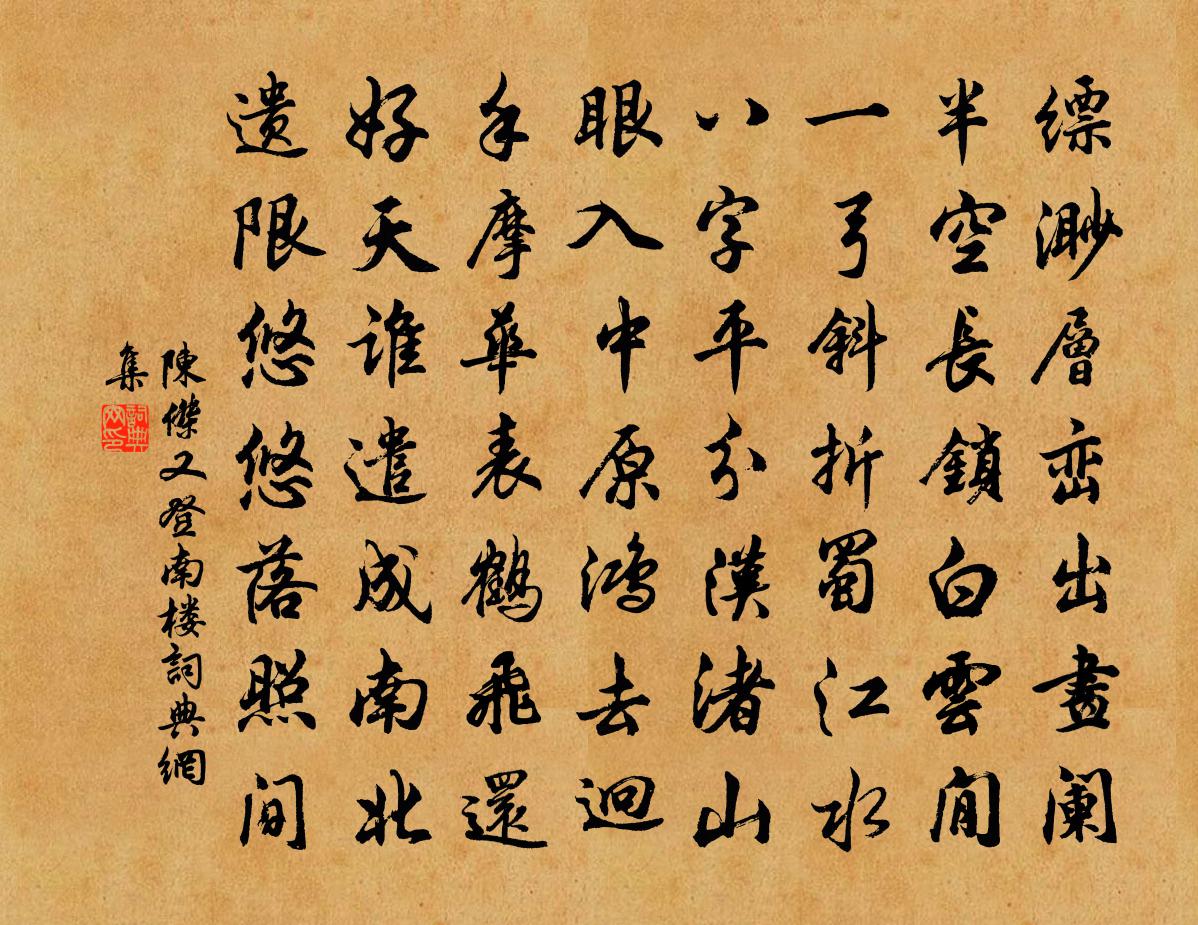 縹渺層巒出畫闌
半空長鎖白雲閒
一弓斜折蜀江水
八字平分漢渚山
眼入中原鴻去迴
手摩華表鶴飛還
好天誰遣成南北
遺限悠悠落照間
陳傑又登南楼詞典網
集
詞典網印